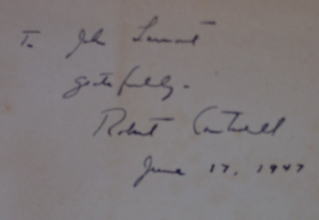 To John Lamont
gratefully -
Robert Cantwell
June 17, 1947